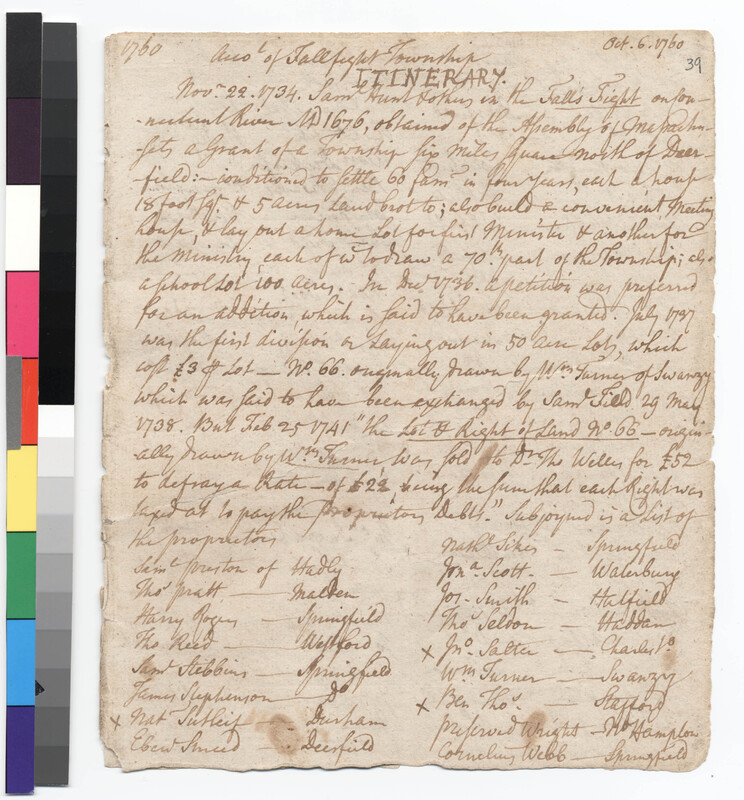 1760 Acco.t of Fallfight Township Oct. 6. 1760
39
ITINERARY.
Nov.r 22. 1734. Sam.l Hunt & others in the Falls Fight on Con-
-necticut River AD 1676, obtained of the Assembly of Massachu-
-setts a Grant of a Township six miles square north of Deer-
-field: - conditioned to settle 60 fam.s in four years, each a house
18 foot sq.r & 5 acres Land bro't to; also build a convenient Meeting
house, & lay out a home Lot for first Minister & another for
the Ministry, each of w.c to draw a 70.th part of the Township; also
a School Lot 100 acres. In Dec.r 1736. a petition was preferred
for an addition, which is said to have been granted. July 1737
was the first division or Laying out in 50 acre Lots, which
cost £3 ⅌ Lot — No. 66. originally drawn by W.m Turner of Swanzy
which was said to have been exchanged by Sam.l Field 29 May
1738. But Feb 25 1741 "the Lot & Right of Land No. 66 - origin-
ally drawn by W.m Turner was sold to D.r Tho Welles for £52
to defray a Rate - of £22, being the sum that each Right was
taxed at to pay the proprietors Debts." Subjoyned is a List of
the proprietors
Sam.l Preston of Hadly
Tho.s Pratt — Malden
Harry Rogers — Springfield
Tho Reed — Westford
Sam.l Stebbins — Springfield
James Stephenson D.o
x Nat.l Sutleif — Durham
Ebenr Smeed — Deerfield
Nath.l Sikes — Springfield
Jon.a Scott — Waterbury
Jos. Smith — Hatfield
Tho.s Seldon — Haddam
x Jn.o Salter — Charlest.o
W.m Turner — Swanzy
x Ben Tho.s — Stafford
Preserved Wright — No Hampton
Cornelius Webb — Springfield